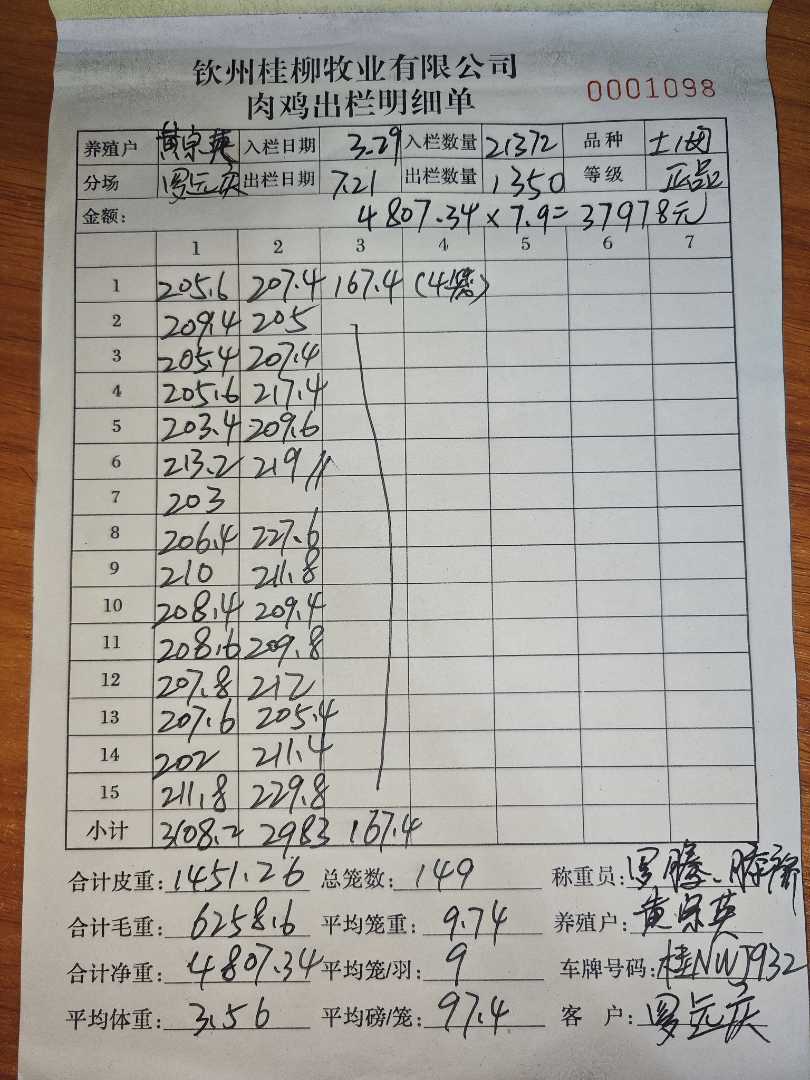 钦州桂柳牧业有限公司
肉鸡出栏明细单 0001098
养殖户 黄宗英 入栏日期 3-29 入栏数量 21372 品种 土1
分场 罗元庆 出栏日期 7.21 出栏数量 1350 等级 正品
金额: 4807.34×7.9=37978元
1 2 3 4 5 6 7
1 205.6 207.4 167.4 (4笼)
2 209.4 205
3 205.4 207.4
4 205.6 217.4
5 203.4 209.6
6 213.2 219 //
7 203
8 206.4 227.6
9 210 211.8
10 208.4 209.4
11 208.6 209.8
12 207.8 212
13 207.6 205.4
14 202 211.4
15 211.8 229.8
小计 3108.2 2983 167.4
合计皮重: 1451.26 总笼数: 149 称重员: 罗腾、
合计毛重: 6258.6 平均笼重: 9.74 养殖户: 黄宗英
合计净重: 4807.34 平均笼/羽: 9 车牌号码: 桂NWJ932
平均体重: 3.56 平均磅/笼: 97.4 客户: 罗元庆